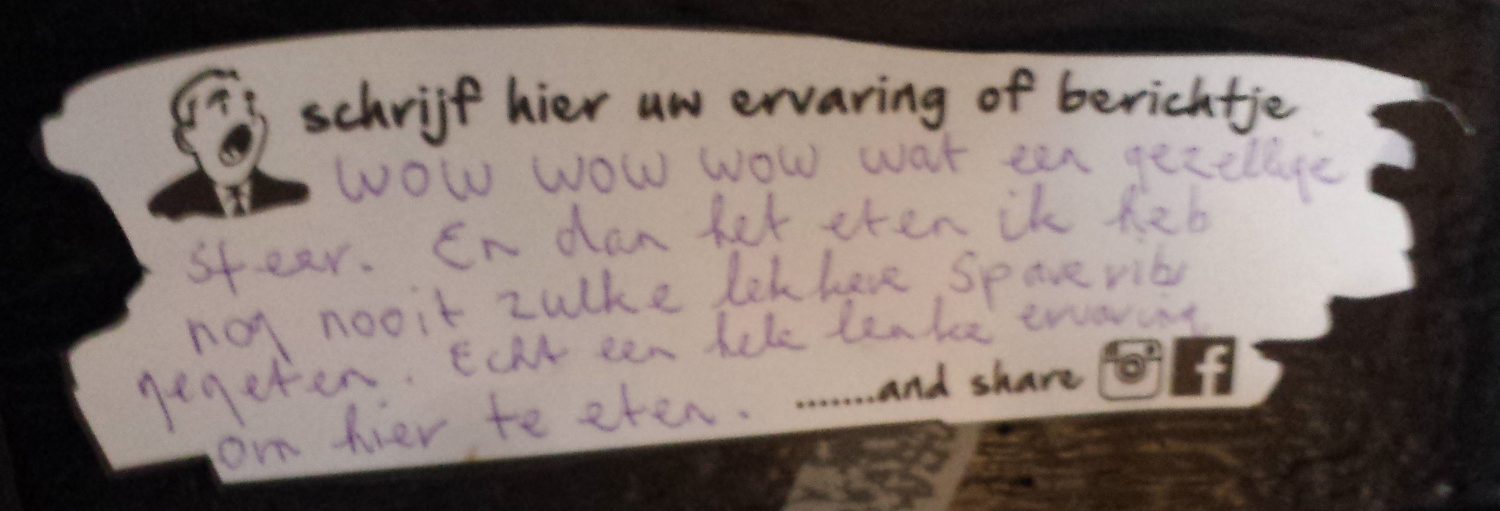 schrijf hier uw ervaring of berichtje
WOW WOW WOW wat een gezellige
sfeer. En dan het eten ik heb
nog nooit zulke lekkere Spare ribs
gegeten. Echt een hele leuke ervaring
om hier te eten.
.......and share f